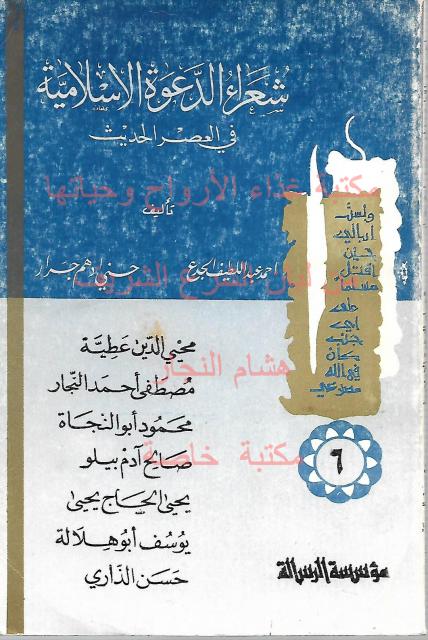 شعراء الدعوة الإسلامية
في العصر الحديث
مكتبة غذاء الأرواح وحياتها
تأليف
احمد عبد اللطيف الجدع
حسني أدهم جرار
الشرح الشريف
ولست
ابالي
حين
اقتل
مسلما
على
اي
جنب
كان
في الله
مصرعي
محيي الدين عطية
هشام النجار
مصطفى أحمد النجار
محمود أبو النجاة
صالح آدم بيلو
مكتبة خاصة
٦
يحيى الحاج يحيى
يوسف أبو هلالة
حسن الذاري
مؤسسة الرسالة